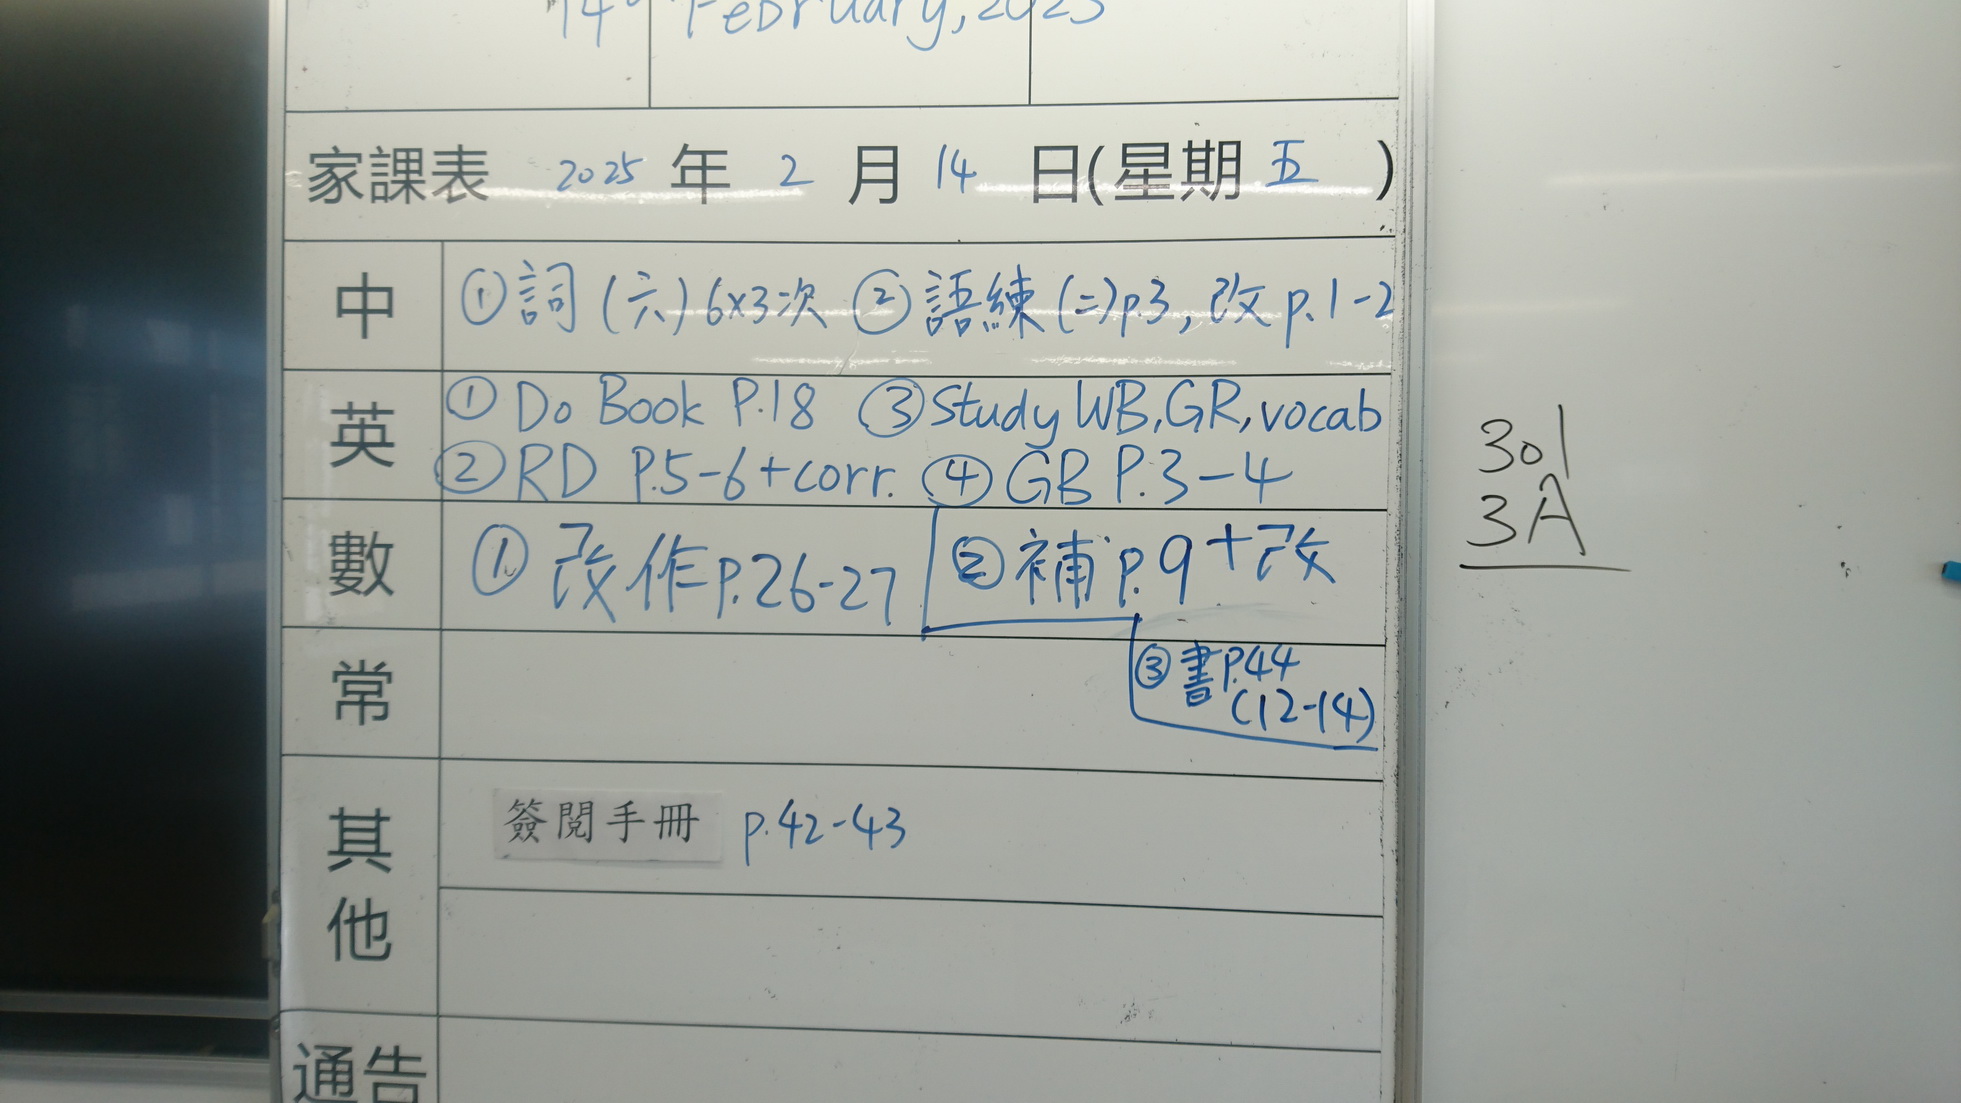 14th February, 2025
家課表 2025 年 2 月 14 日(星期 五 )
中 ①詞(六)6x3次 ②語練(二)p.3, 改p.1-2
英 ① Do Book P.18 ③Study WB,GR,vocab
② RD P.5-6+corr. ④ GB P.3-4
數 ① 改作p.26-27 ②補p.9+改
常 ③書P.44
(12-14)
其他 簽閱手冊 p.42-43
通告
301
3A